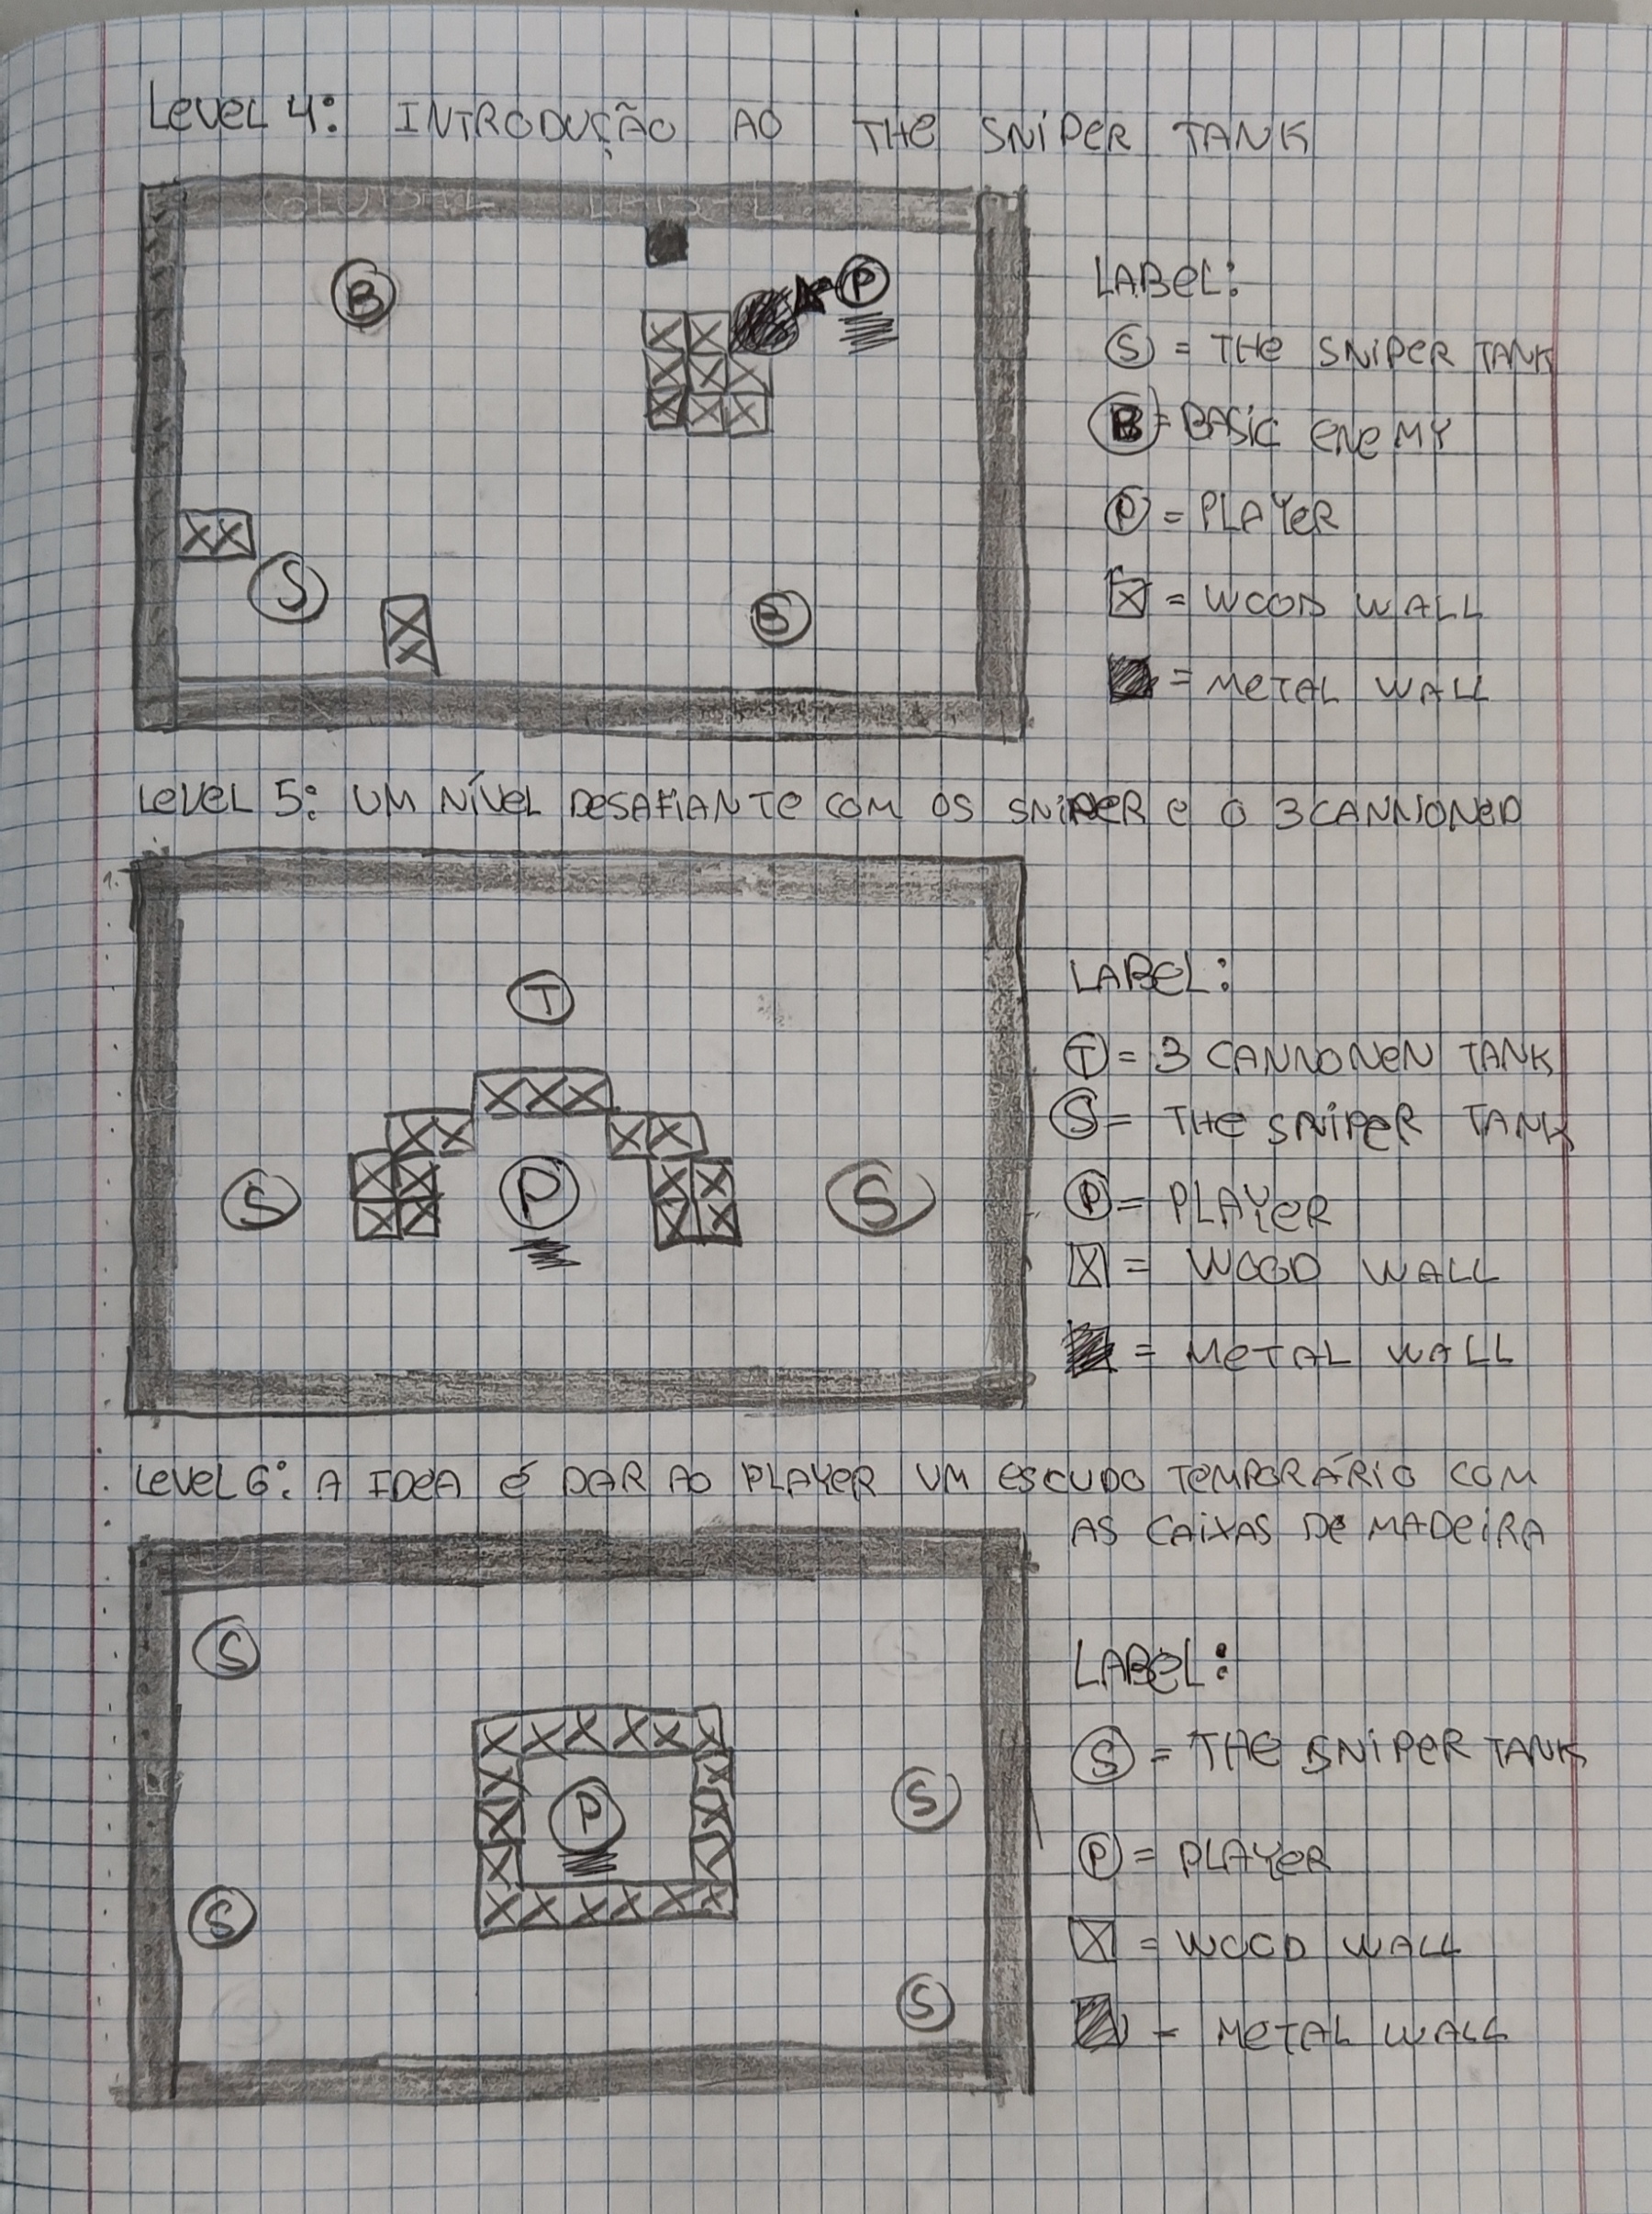 Level 4: INTRODUÇÃO AO THE SNIPER TANK
B
P
S
B
LABEL:
S = THE SNIPER TANK
B = BASIC ENEMY
P = PLAYER
X = WOOD WALL
= METAL WALL
LEVEL 5: UM NÍVEL DESAFIANTE COM OS SNIPER E O 3 CANNONED
T
S
P
S
LABEL:
T = 3 CANNONEN TANK
S = THE SNIPER TANK
P = PLAYER
X = WOOD WALL
= METAL WALL
LEVEL 6: A IDEA É DAR AO PLAYER UM ESCUDO TEMPORÁRIO COM
AS CAIXAS DE MADEIRA
S
P
S
S
S
LABEL:
S = THE SNIPER TANK
P = PLAYER
X = WOOD WALL
= METAL WALL